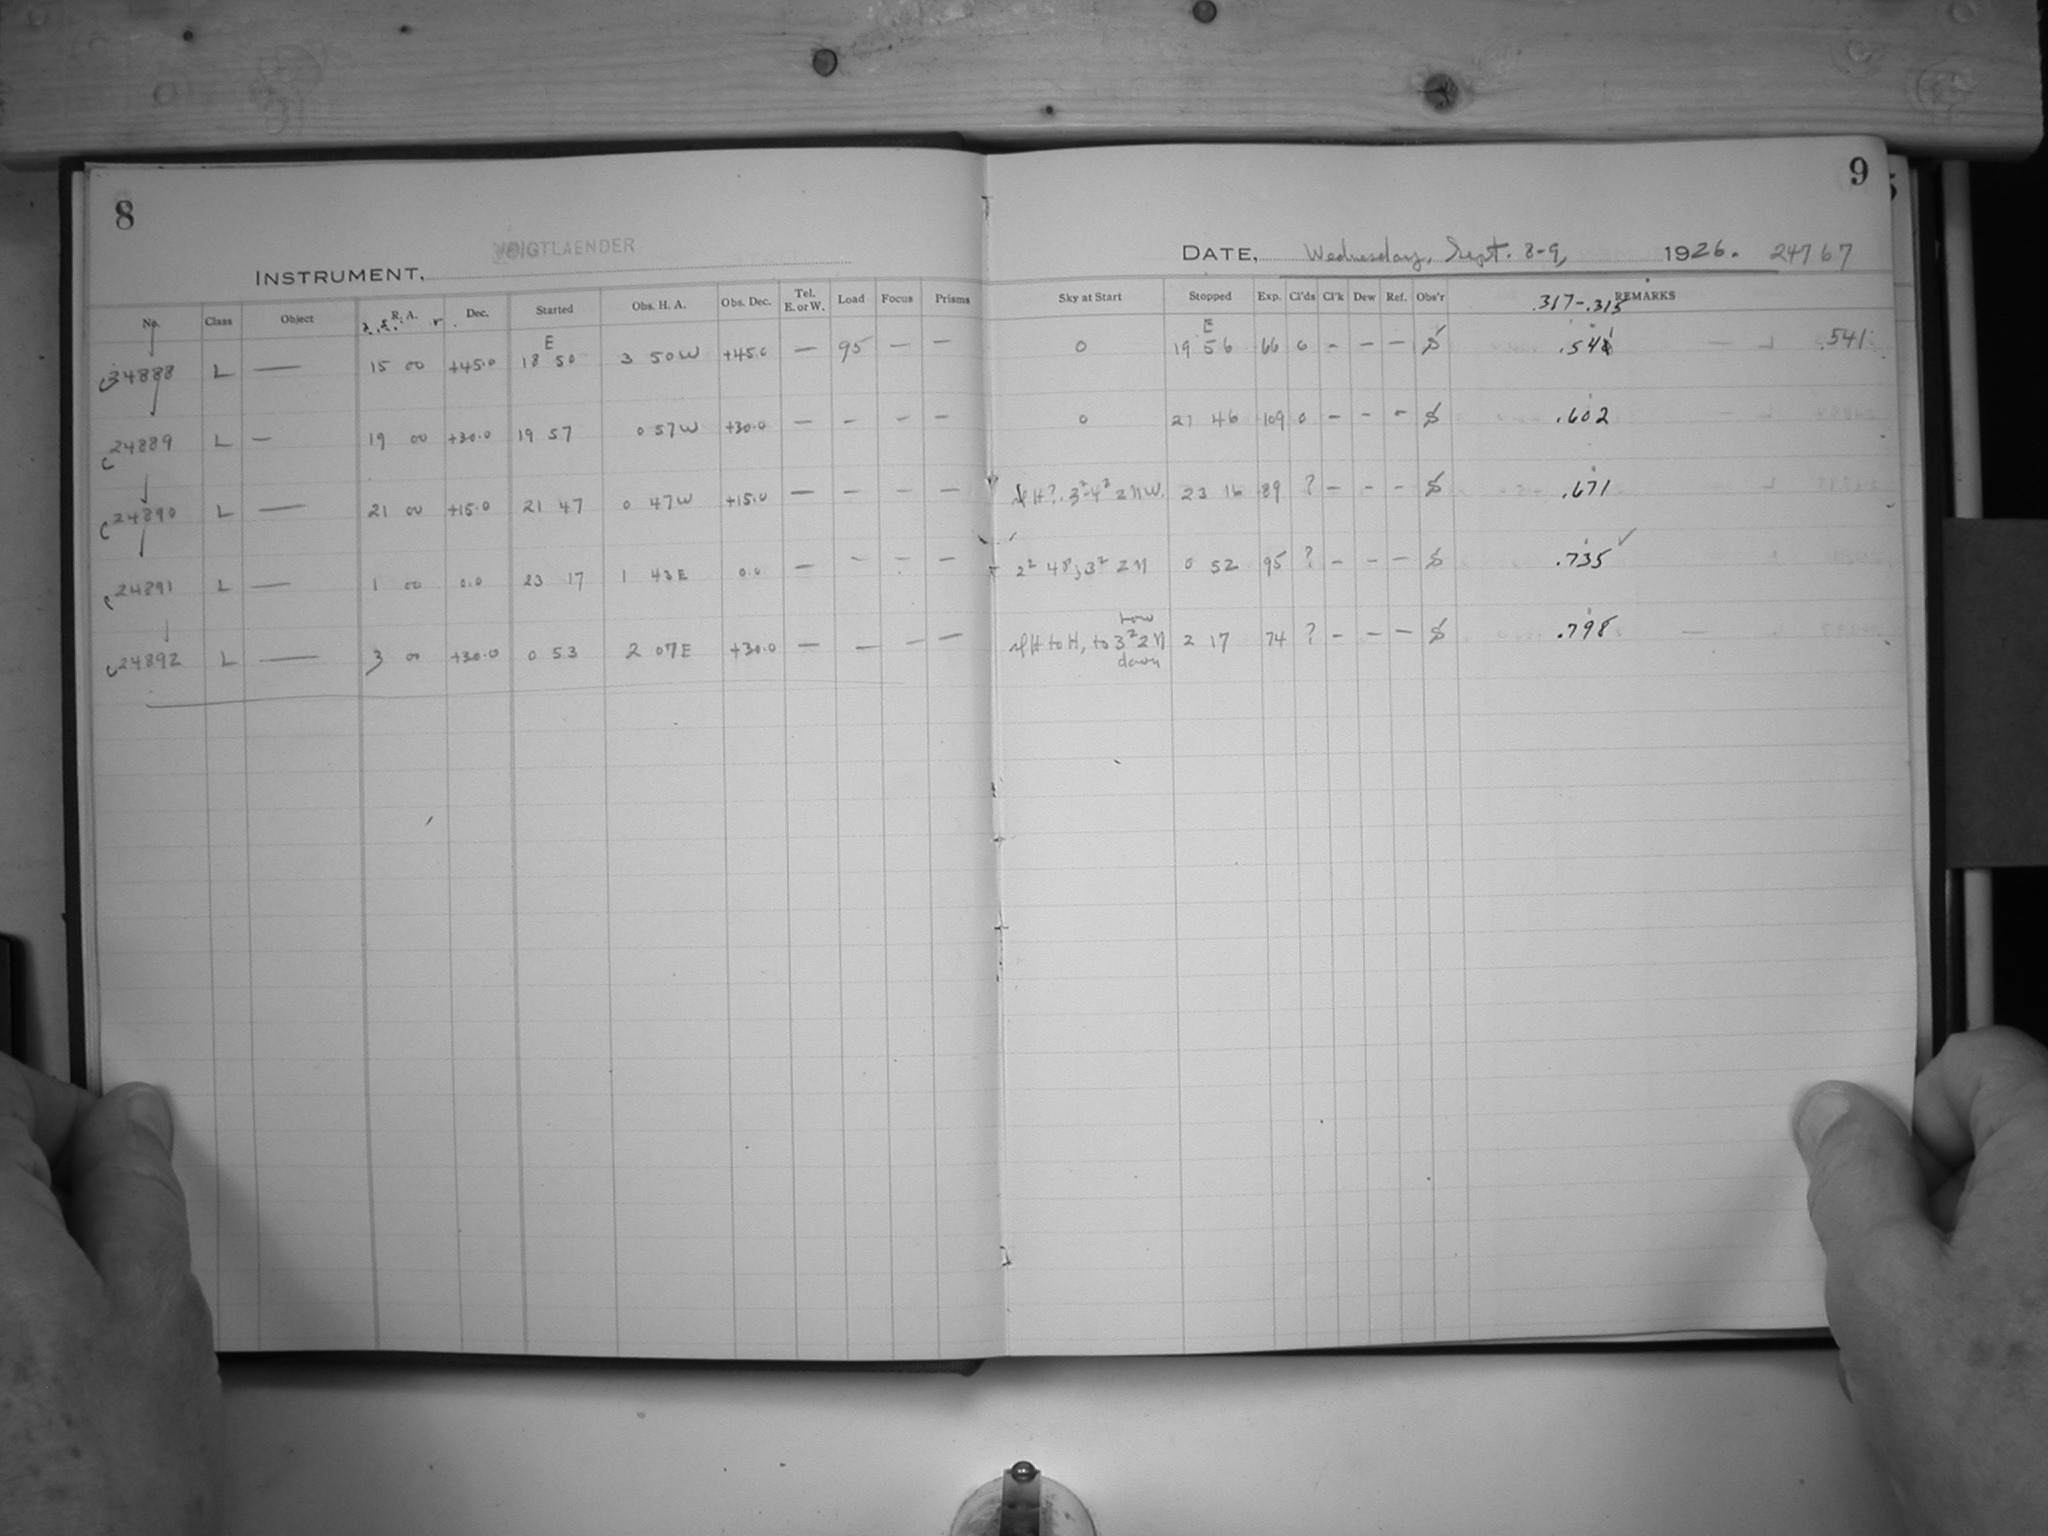 8
VOIGTLAENDER
INSTRUMENT,
No. Class Object R. A. Dec. Started Obs. H. A. Obs. Dec. Tel. E. or W. Load Focus Prisms
E
24888 L — 15 00 +45.0 18 50 3 50 W +45.0 — 95 — —
24889 L — 19 00 +30.0 19 57 0 57 W +30.0 — — — —
24890 L — 21 00 +15.0 21 47 0 47 W +15.0 — — — —
24891 L — 1 00 0.0 23 17 1 43 E 0.0 — — — —
24892 L — 3 00 +30.0 0 53 2 07 E +30.0 — — — —
9
DATE, Wednesday, Sept. 8-9, 1926. 24767
Sky at Start Stopped Exp. Cl'ds Cl'k Dew Ref. Obs'r REMARKS
.317-.315
E
0 19 56 66 0 - - - .541 .541
0 21 46 109 0 - - - .602
H?. 3²-4³ 2 N W. 23 16 89 ? - - - .671
2² 48; 3² 2 N 0 52 95 ? - - - .735 ✓
low
H to H, to 3² 2 N 2 17 74 ? - - - .798
down